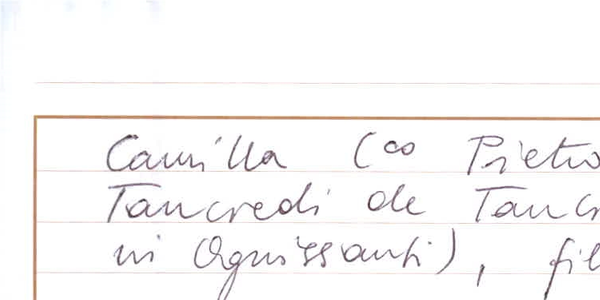 Camilla (co Pietro
Tancredi de Tanc
in Ognissanti), fil